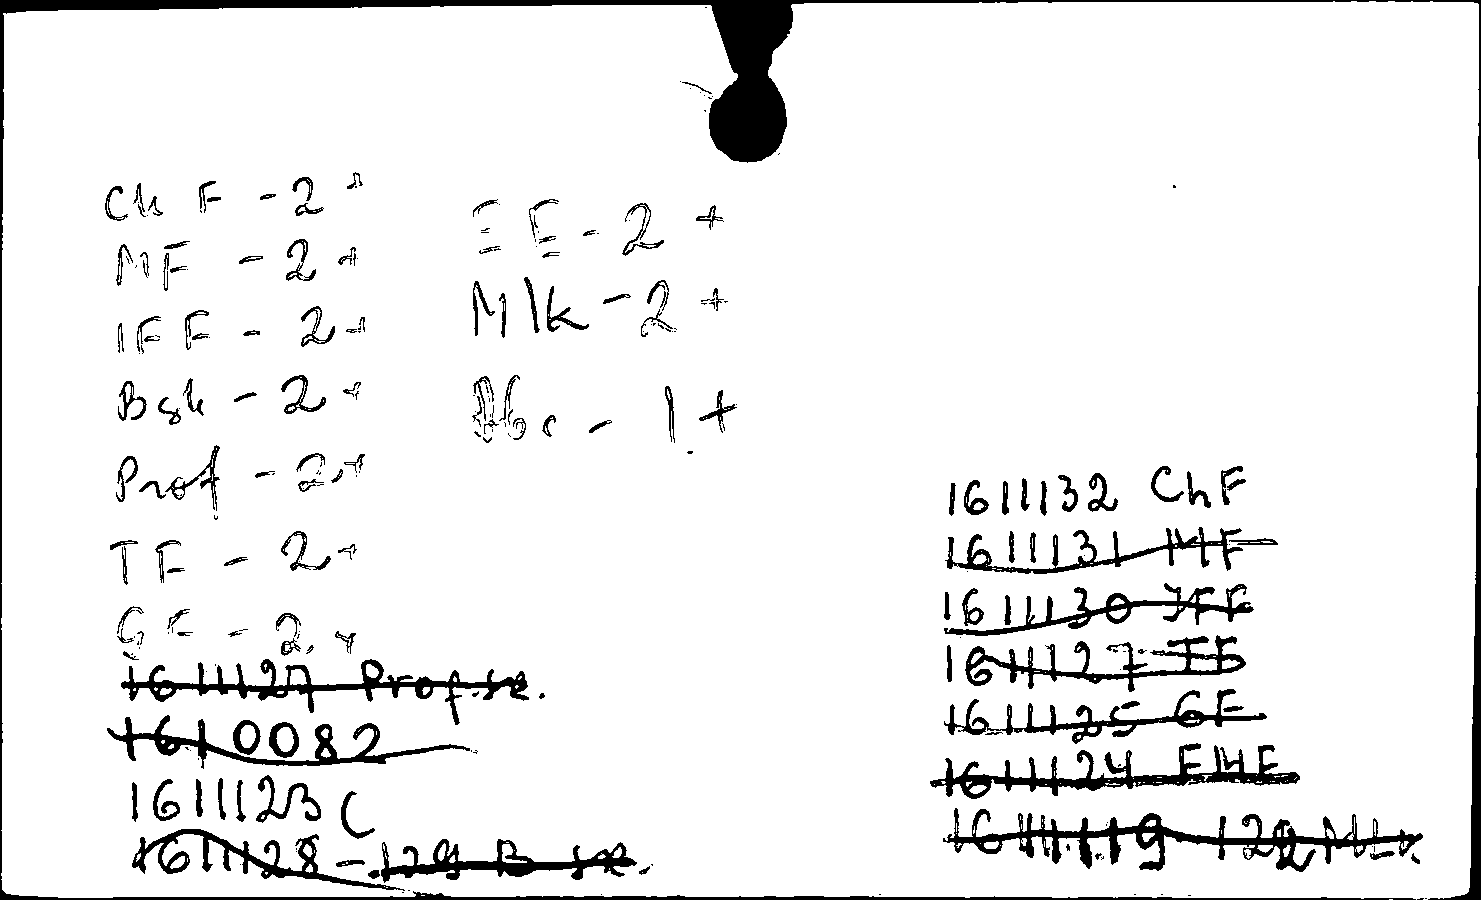 Ch F - 2 +
MF - 2 +
IFF - 2 +
Bsk - 2 +
Prof - 2 +
TF - 2 +
GF - 2 +
1611127 Prof.se.
1610082
1611123 C
1611128 - 129 B se.
EE - 2 +
Mlk - 2 +
- 1 +
1611132 ChF
1611131 MF
1611130 IFF
1611127 TF
1611125 GF
1611124 EMF
1611119 122 Mlk